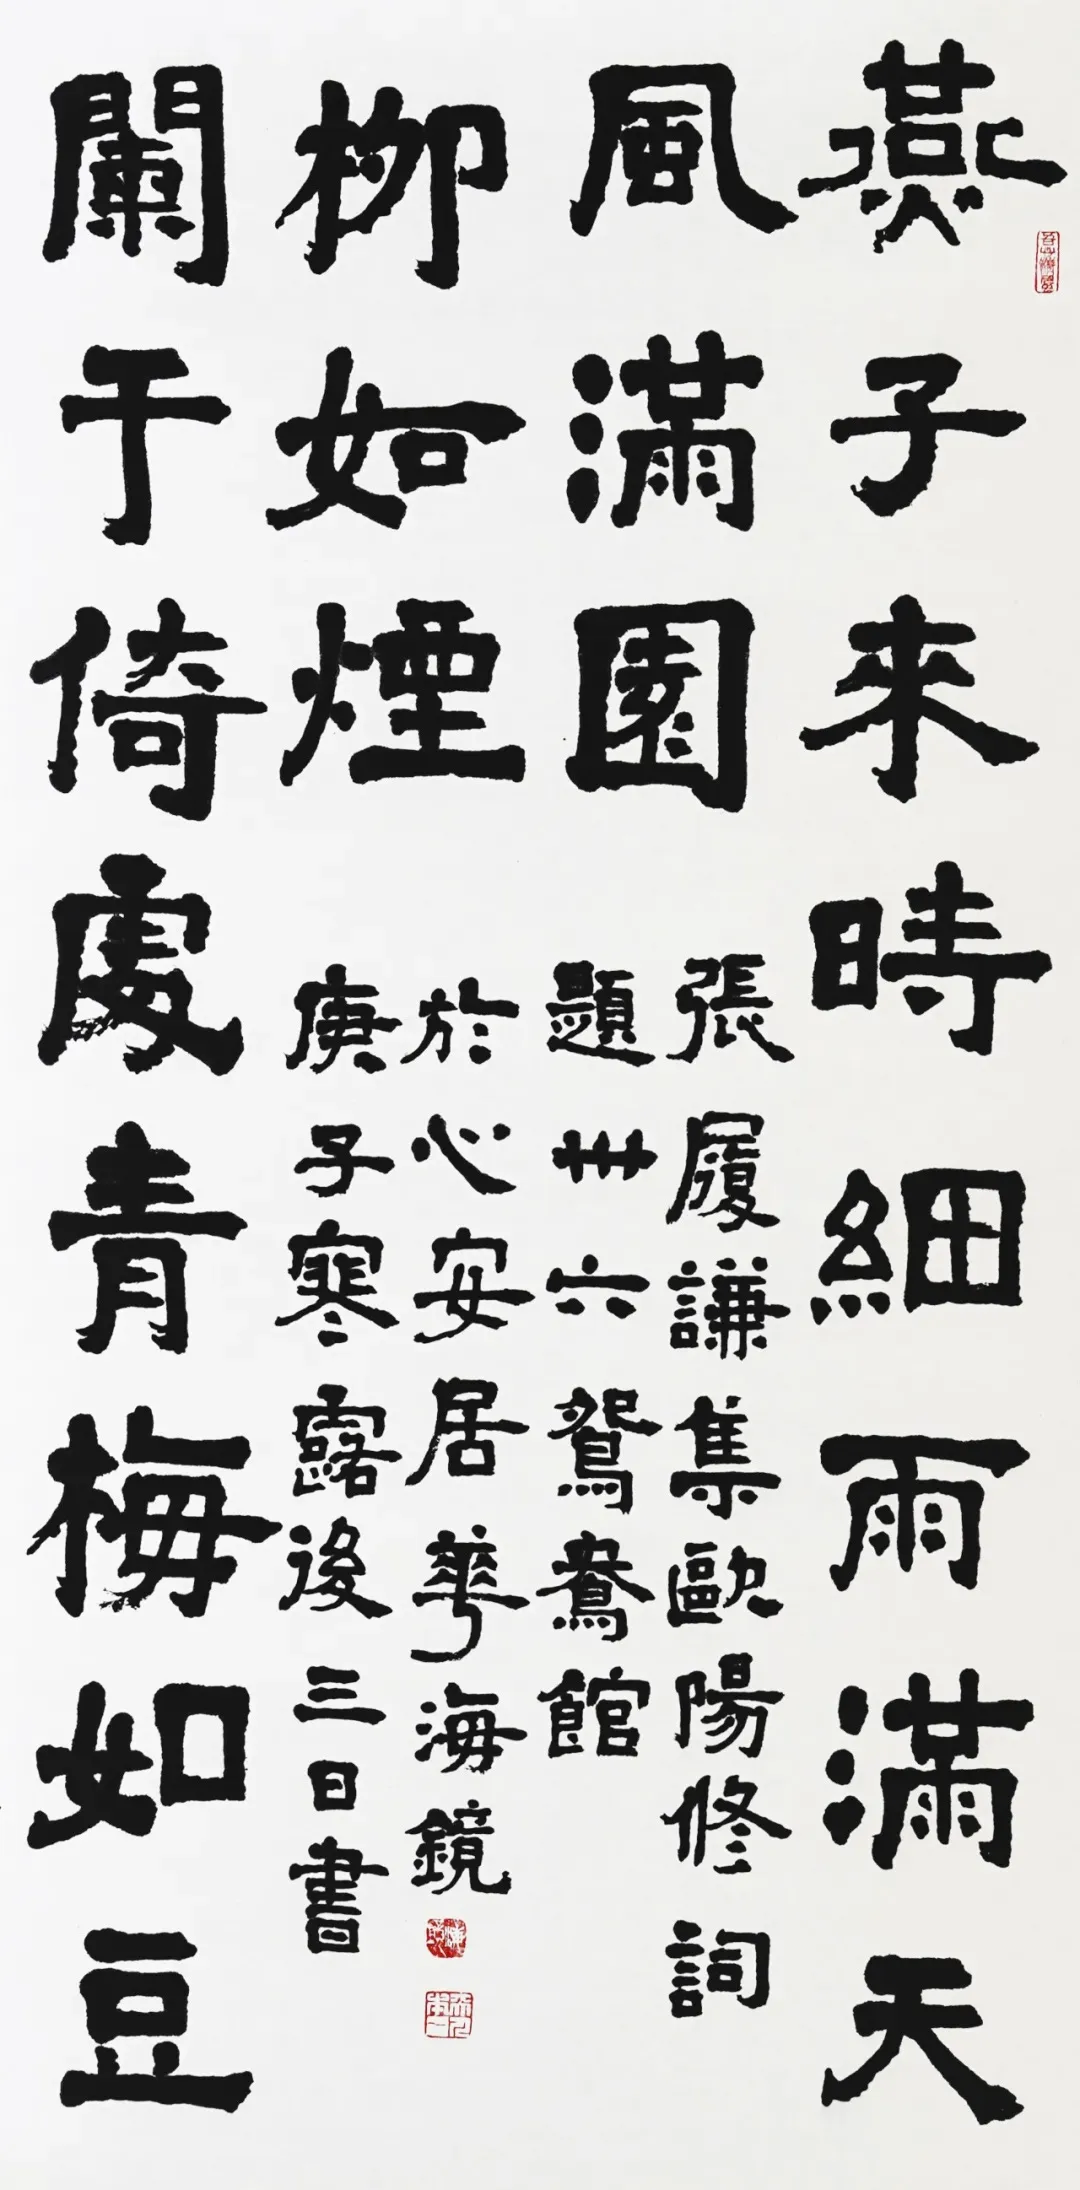 燕子來時細雨滿天
風滿園
張履謙集歐陽修詞
題卅六鴛鴦館
闌干倚處青梅如豆
柳如煙
庚子寒露後三日書
於心安居華海鏡